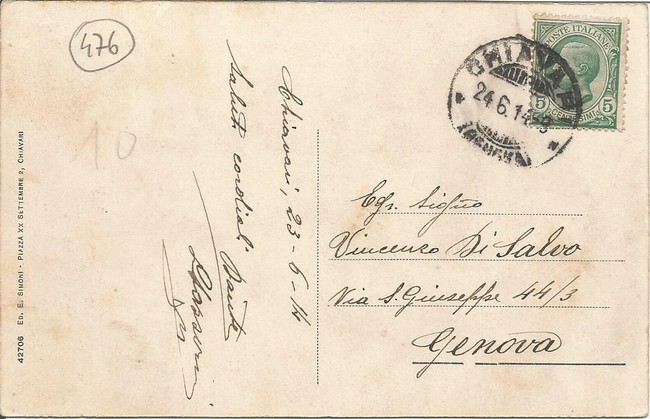 476
10
42706 ED. E. SIMONI - PIAZZA XX SETTEMBRE 2, CHIAVARI
Chiavari, 23-6-14
Saluti cordiali
Dante
POSTE ITALIANE
5 5
CENTESIMI
CHIAVARI
24.6.14-8
(GENOVA)
Egr. Signo
Vincenzo Di Salvo
Via S. Giuseppe 44/3
Genova